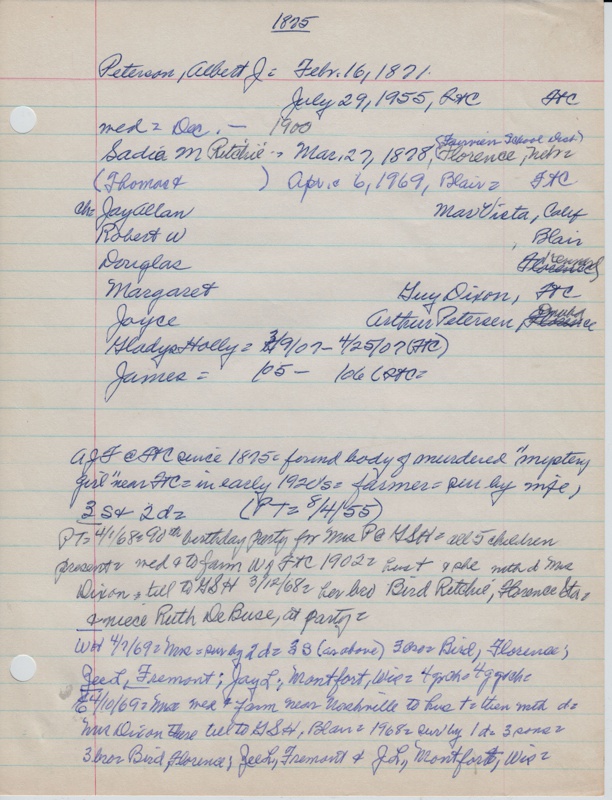 1875
Peterson, Albert J = Feb. 16, 1871.
July 29, 1955, FtC FtC
med = Dec. - 1900
(Fairview School Dist)
Sadie M Ritchie = Mar. 27, 1878, Florence, Nebr
(Thomas & ) Apr. 6, 1969, Blair = FtC
ch = Jay Allan Mar Vista, Calif
Robert W , Blair
Douglas Kennard
Margaret Guy Dixon, FtC
Joyce Arthur Petersen, Omaha
Gladys Holly = 3/9/07 - 4/25/07 (FtC)
James = /05 - /06 (FtC =
AJ F c FtC since 1875 = found body of murdered "mystery
girl" near FtC = in early 1920's = farmer = sur by wife,
3 s & 2 d = (PT = 8/4/55)
PT = 4/1/68 = 90th birthday party for Mrs P @ GSH = all 5 children
present = med & to farm W of FtC 1902 = hus t & she mtd d Mrs
Dixon & till to GSH 3/12/68 = her bro Bird Ritchie, Florence Sta =
& niece Ruth De Buse, at party =
WH 4/7/69 = Mrs = sur by 2 d = 3 s (as above) 3 bro = Bird, Florence;
Zeed, Fremont; Jay L; Montfort, Wis = 4 grch = 4 g grch =
4/10/69 = Mrs med & farm near Nashville to hus t = then mtd d =
Mrs Dixon there till to GSH, Blair = 1968 = sur by 2 d = 3 sons =
3 bro = Bird, Florence; Zeed, Fremont & J L, Montfort, Wis =